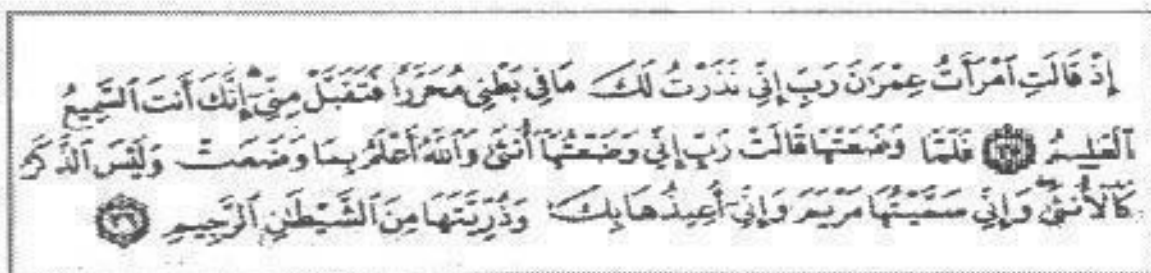 إِذْ قَالَتِ ٱمْرَأَتُ عِمْرَٰنَ رَبِّ إِنِّي نَذَرْتُ لَكَ مَا فِي بَطْنِي مُحَرَّرًا فَتَقَبَّلْ مِنِّيٓ ۖ إِنَّكَ أَنتَ ٱلسَّمِيعُ
ٱلْعَلِيمُ ۝٣٥ فَلَمَّا وَضَعَتْهَا قَالَتْ رَبِّ إِنِّي وَضَعْتُهَآ أُنثَىٰ وَٱللَّهُ أَعْلَمُ بِمَا وَضَعَتْ وَلَيْسَ ٱلذَّكَرُ
كَٱلْأُنثَىٰ ۖ وَإِنِّي سَمَّيْتُهَا مَرْيَمَ وَإِنِّيٓ أُعِيذُهَا بِكَ وَذُرِّيَّتَهَا مِنَ ٱلشَّيْطَٰنِ ٱلرَّجِيمِ ۝٣٦